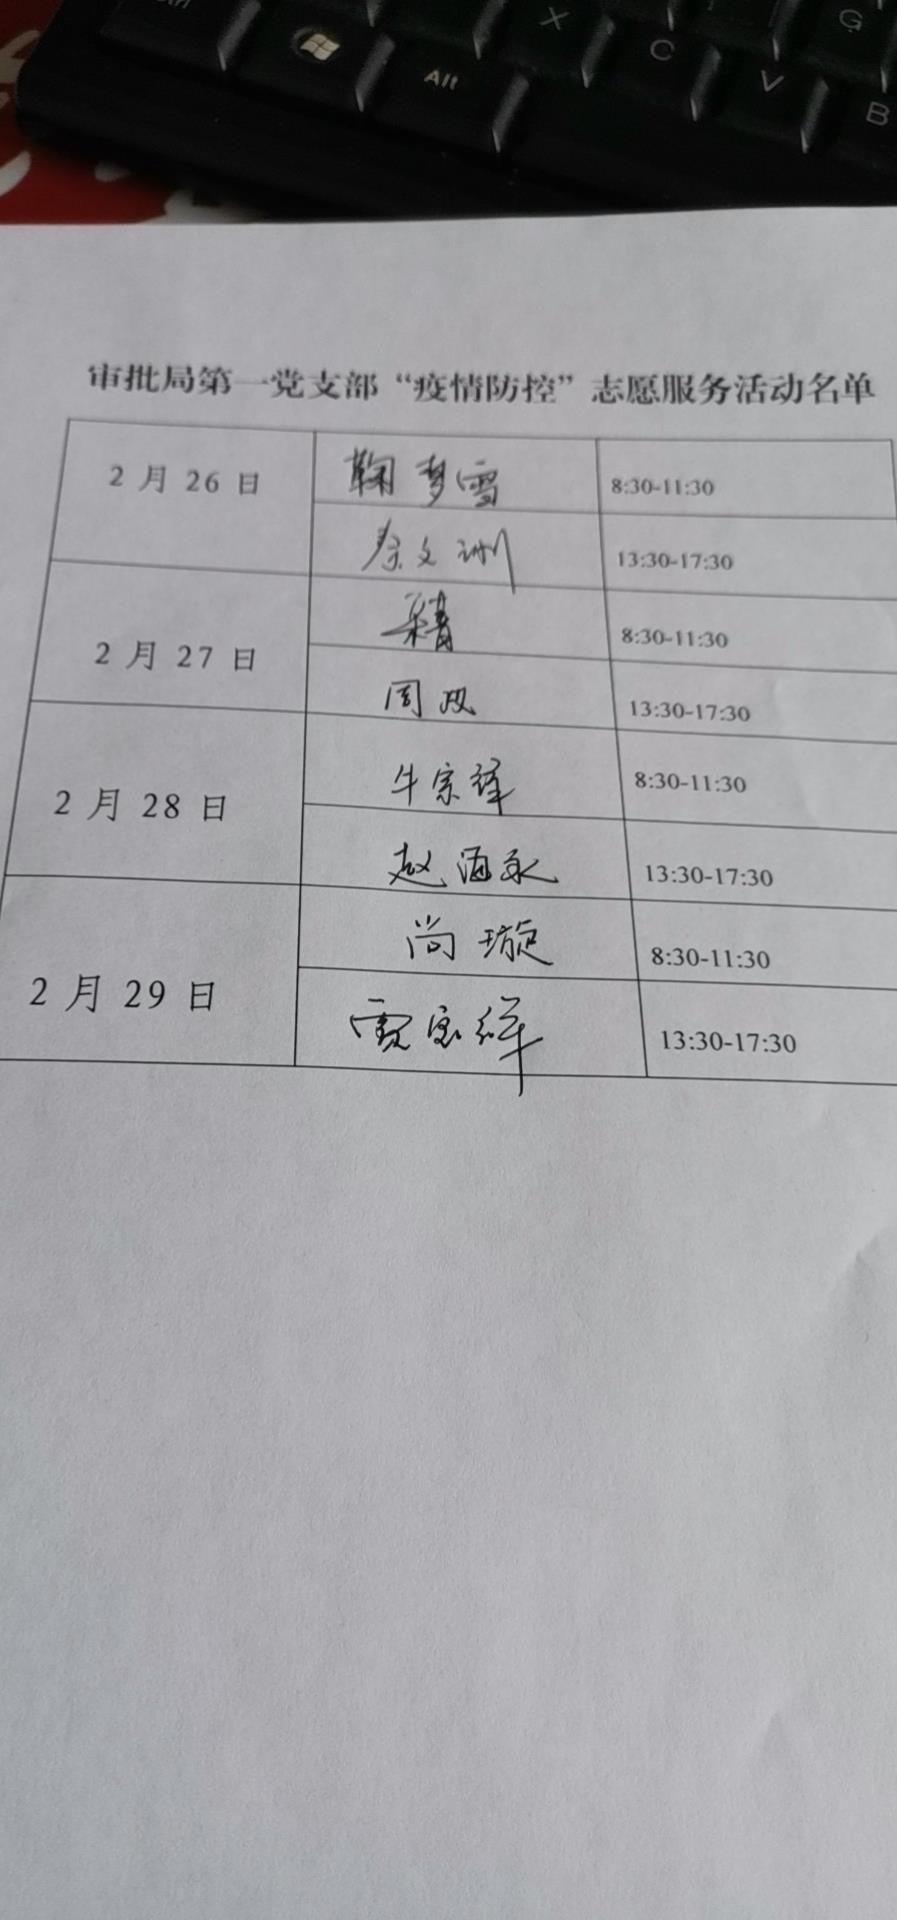 X
C
V
G
B
Alt
审批局第一党支部“疫情防控”志愿服务活动名单
2 月 26 日
鞠梦雪
8:30-11:30
文洲
13:30-17:30
2 月 27 日
8:30-11:30
周双
13:30-17:30
2 月 28 日
牛宗泽
8:30-11:30
赵海永
13:30-17:30
2 月 29 日
尚璇
8:30-11:30
贾宗祥
13:30-17:30